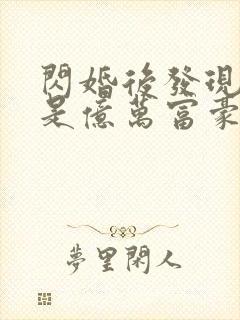 閃婚後發現
是億萬富豪
夢里閑人